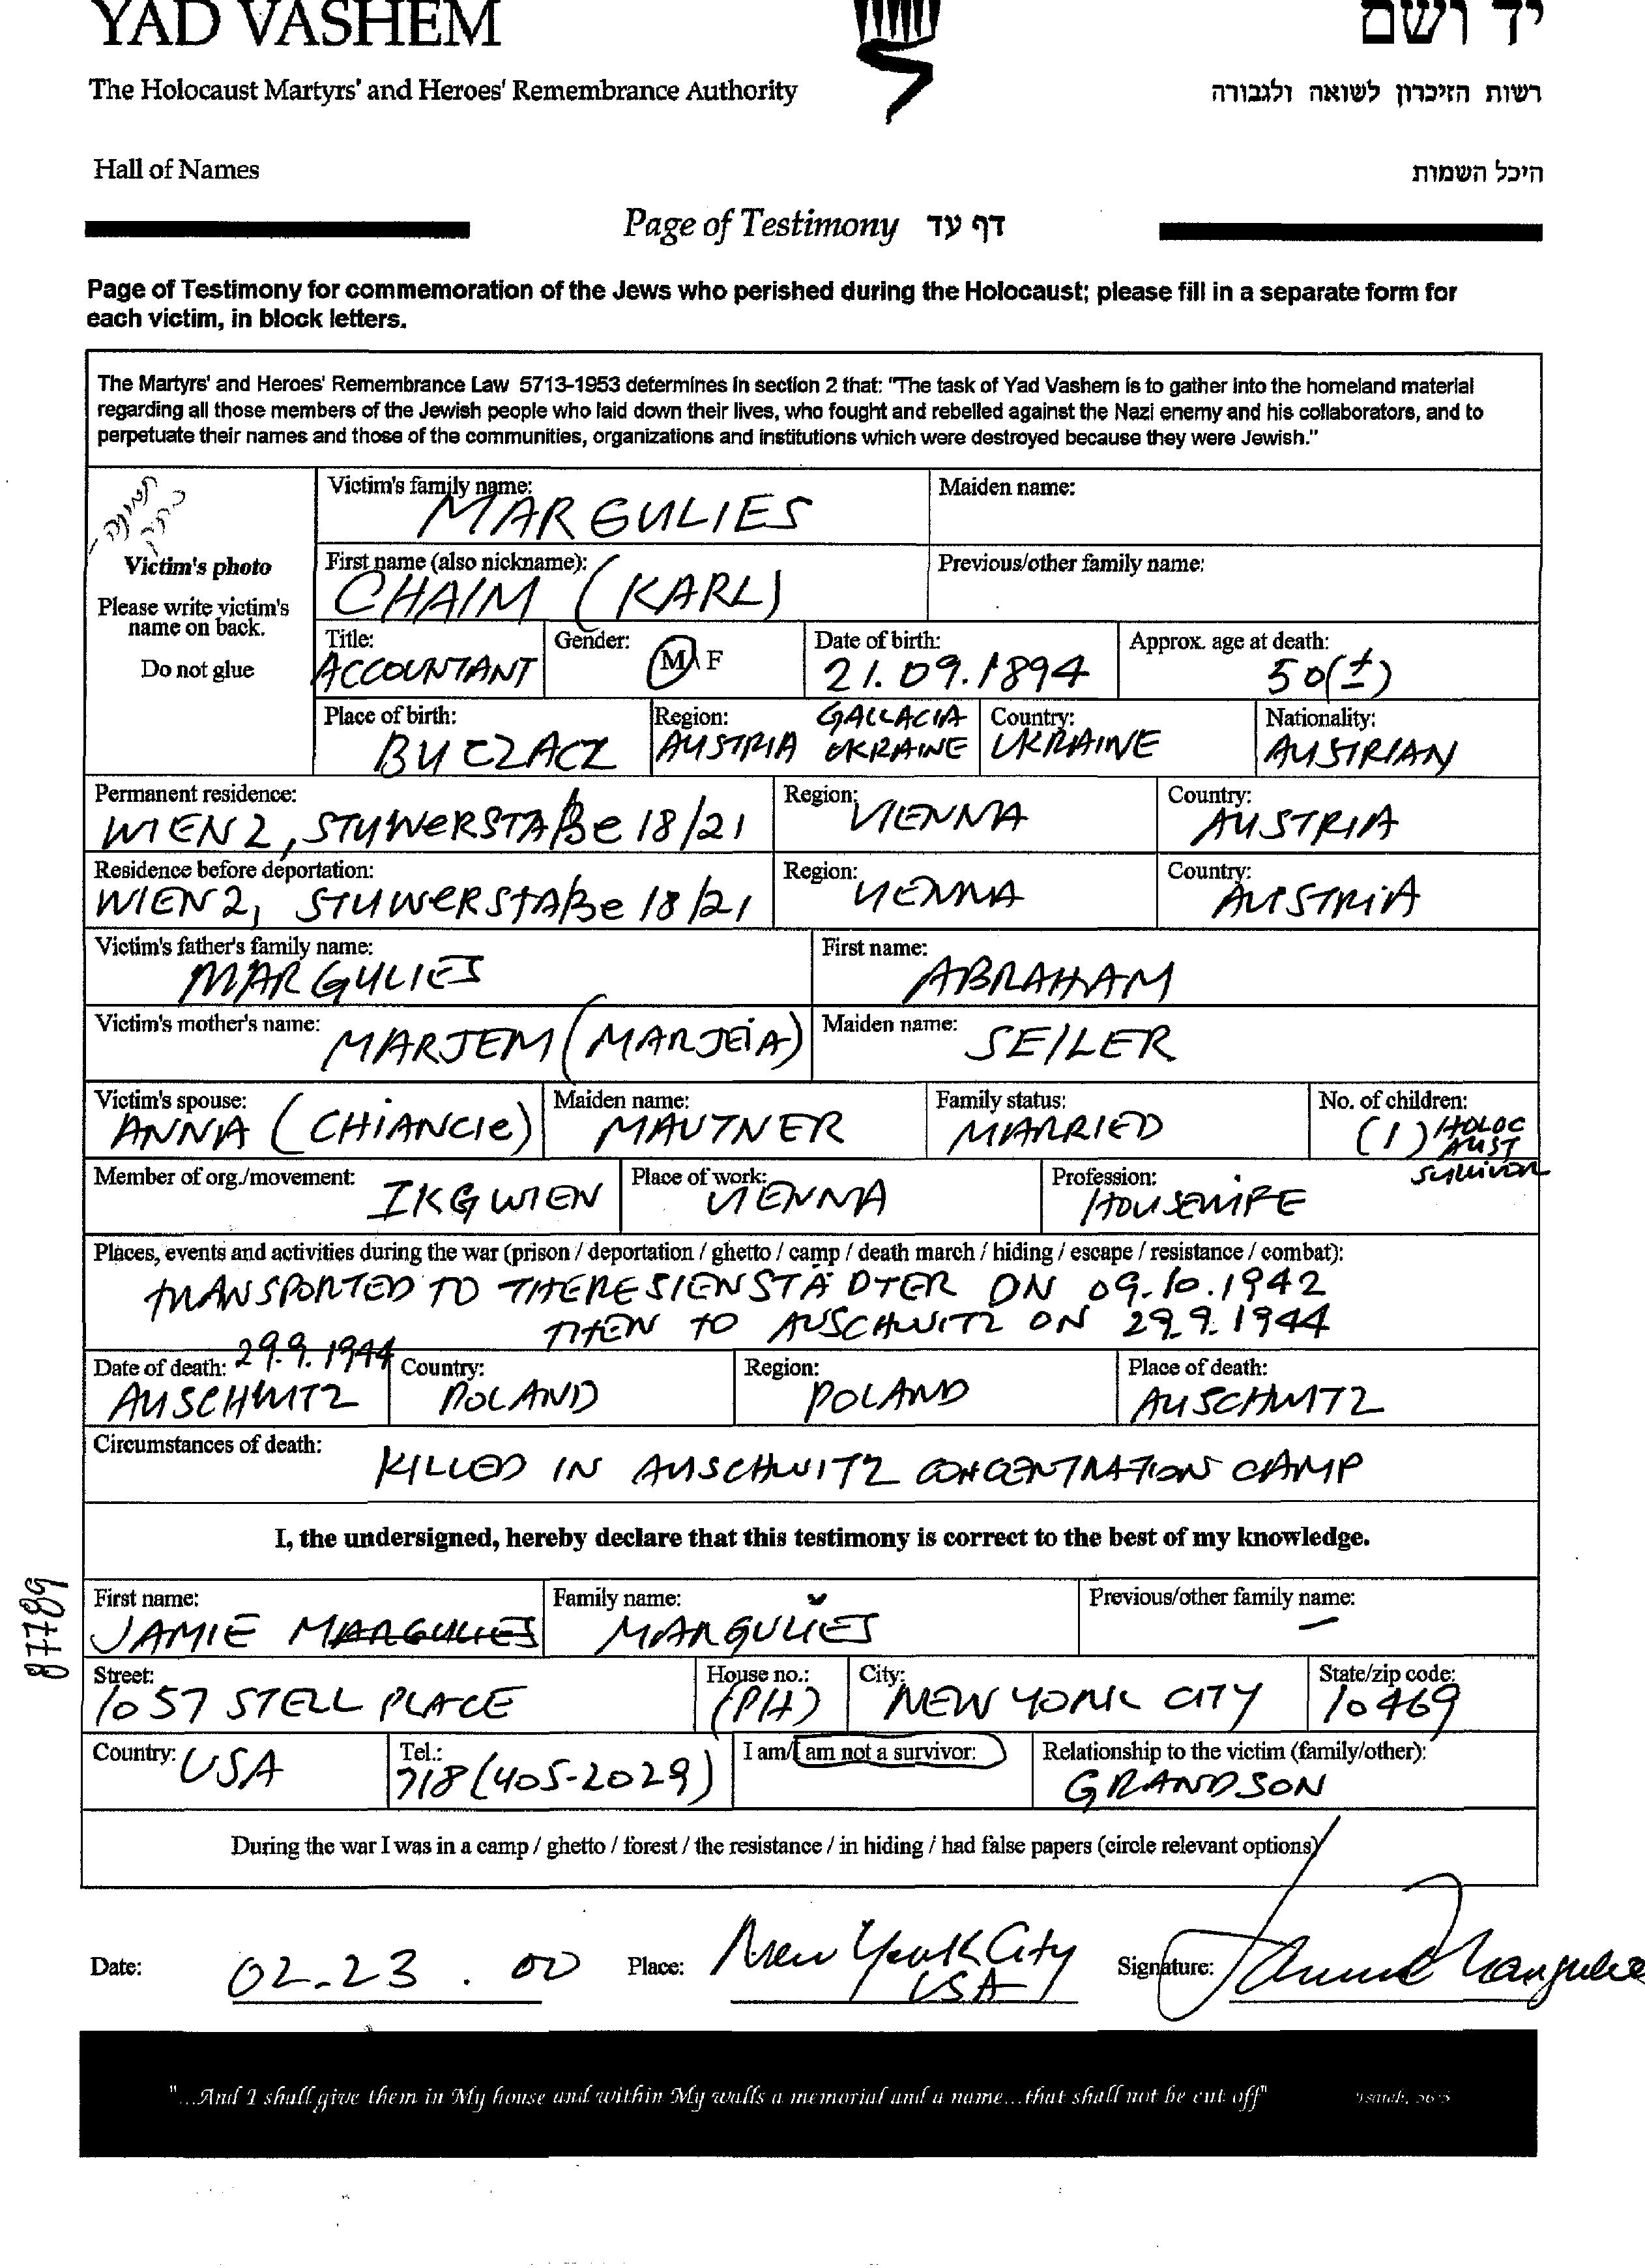 YAD VASHEM
יד ושם
The Holocaust Martyrs' and Heroes' Remembrance Authority
רשות הזיכרון לשואה ולגבורה
Hall of Names
היכל השמות
Page of Testimony דף עד
Page of Testimony for commemoration of the Jews who perished during the Holocaust; please fill in a separate form for
each victim, in block letters.
The Martyrs' and Heroes' Remembrance Law 5713-1953 determines in section 2 that: "The task of Yad Vashem is to gather into the homeland material
regarding all those members of the Jewish people who laid down their lives, who fought and rebelled against the Nazi enemy and his collaborators, and to
perpetuate their names and those of the communities, organizations and institutions which were destroyed because they were Jewish."
Victim's photo
Please write victim's
name on back.
Do not glue
Victim's family name: MARGULIES
Maiden name:
First name (also nickname): CHAIM (KARL)
Previous/other family name:
Title: ACCOUNTANT
Gender: M F
Date of birth: 21.09.1894
Approx. age at death: 50(±)
Place of birth: BUCZACZ
Region: AUSTRIA GALLACIA UKRAINE
Country: UKRAINE
Nationality: AUSTRIAN
Permanent residence: WIEN 2, STUWERSTAßE 18/21
Region: VIENNA
Country: AUSTRIA
Residence before deportation: WIEN 2, STUWERSTAßE 18/21
Region: VIENNA
Country: AUSTRIA
Victim's father's family name: MARGULIES
First name: ABRAHAM
Victim's mother's name: MARJEM (MARJEIA)
Maiden name: SEILER
Victim's spouse: ANNA (CHIANCIE)
Maiden name: MAUTNER
Family status: MARRIED
No. of children: (1) HOLOCAUST SURVIVOR
Member of org./movement: IKG WIEN
Place of work: VIENNA
Profession: HOUSEWIFE
Places, events and activities during the war (prison / deportation / ghetto / camp / death march / hiding / escape / resistance / combat):
TRANSPORTED TO THERESIENSTÄDTER ON 09.10.1942
THEN TO AUSCHWITZ ON 29.9.1944
Date of death: 29.9.1944 AUSCHWITZ
Country: POLAND
Region: POLAND
Place of death: AUSCHWITZ
Circumstances of death: KILLED IN AUSCHWITZ CONCENTRATION CAMP
I, the undersigned, hereby declare that this testimony is correct to the best of my knowledge.
87789
First name: JAMIE MARGULIES
Family name: MARGULIES
Previous/other family name: —
Street: 1057 STELL PLACE
House no.: (PH)
City: NEW YORK CITY
State/zip code: 10469
Country: USA
Tel.: 718 (405-2029)
I am/I am not a survivor:
Relationship to the victim (family/other): GRANDSON
During the war I was in a camp / ghetto / forest / the resistance / in hiding / had false papers (circle relevant options)
Date: 02-23.00 Place: New York City USA Signature: Jamie Margulies
"...And I shall give them in My house and within My walls a memorial and a name...that shall not be cut off" Isaiah, 56:5